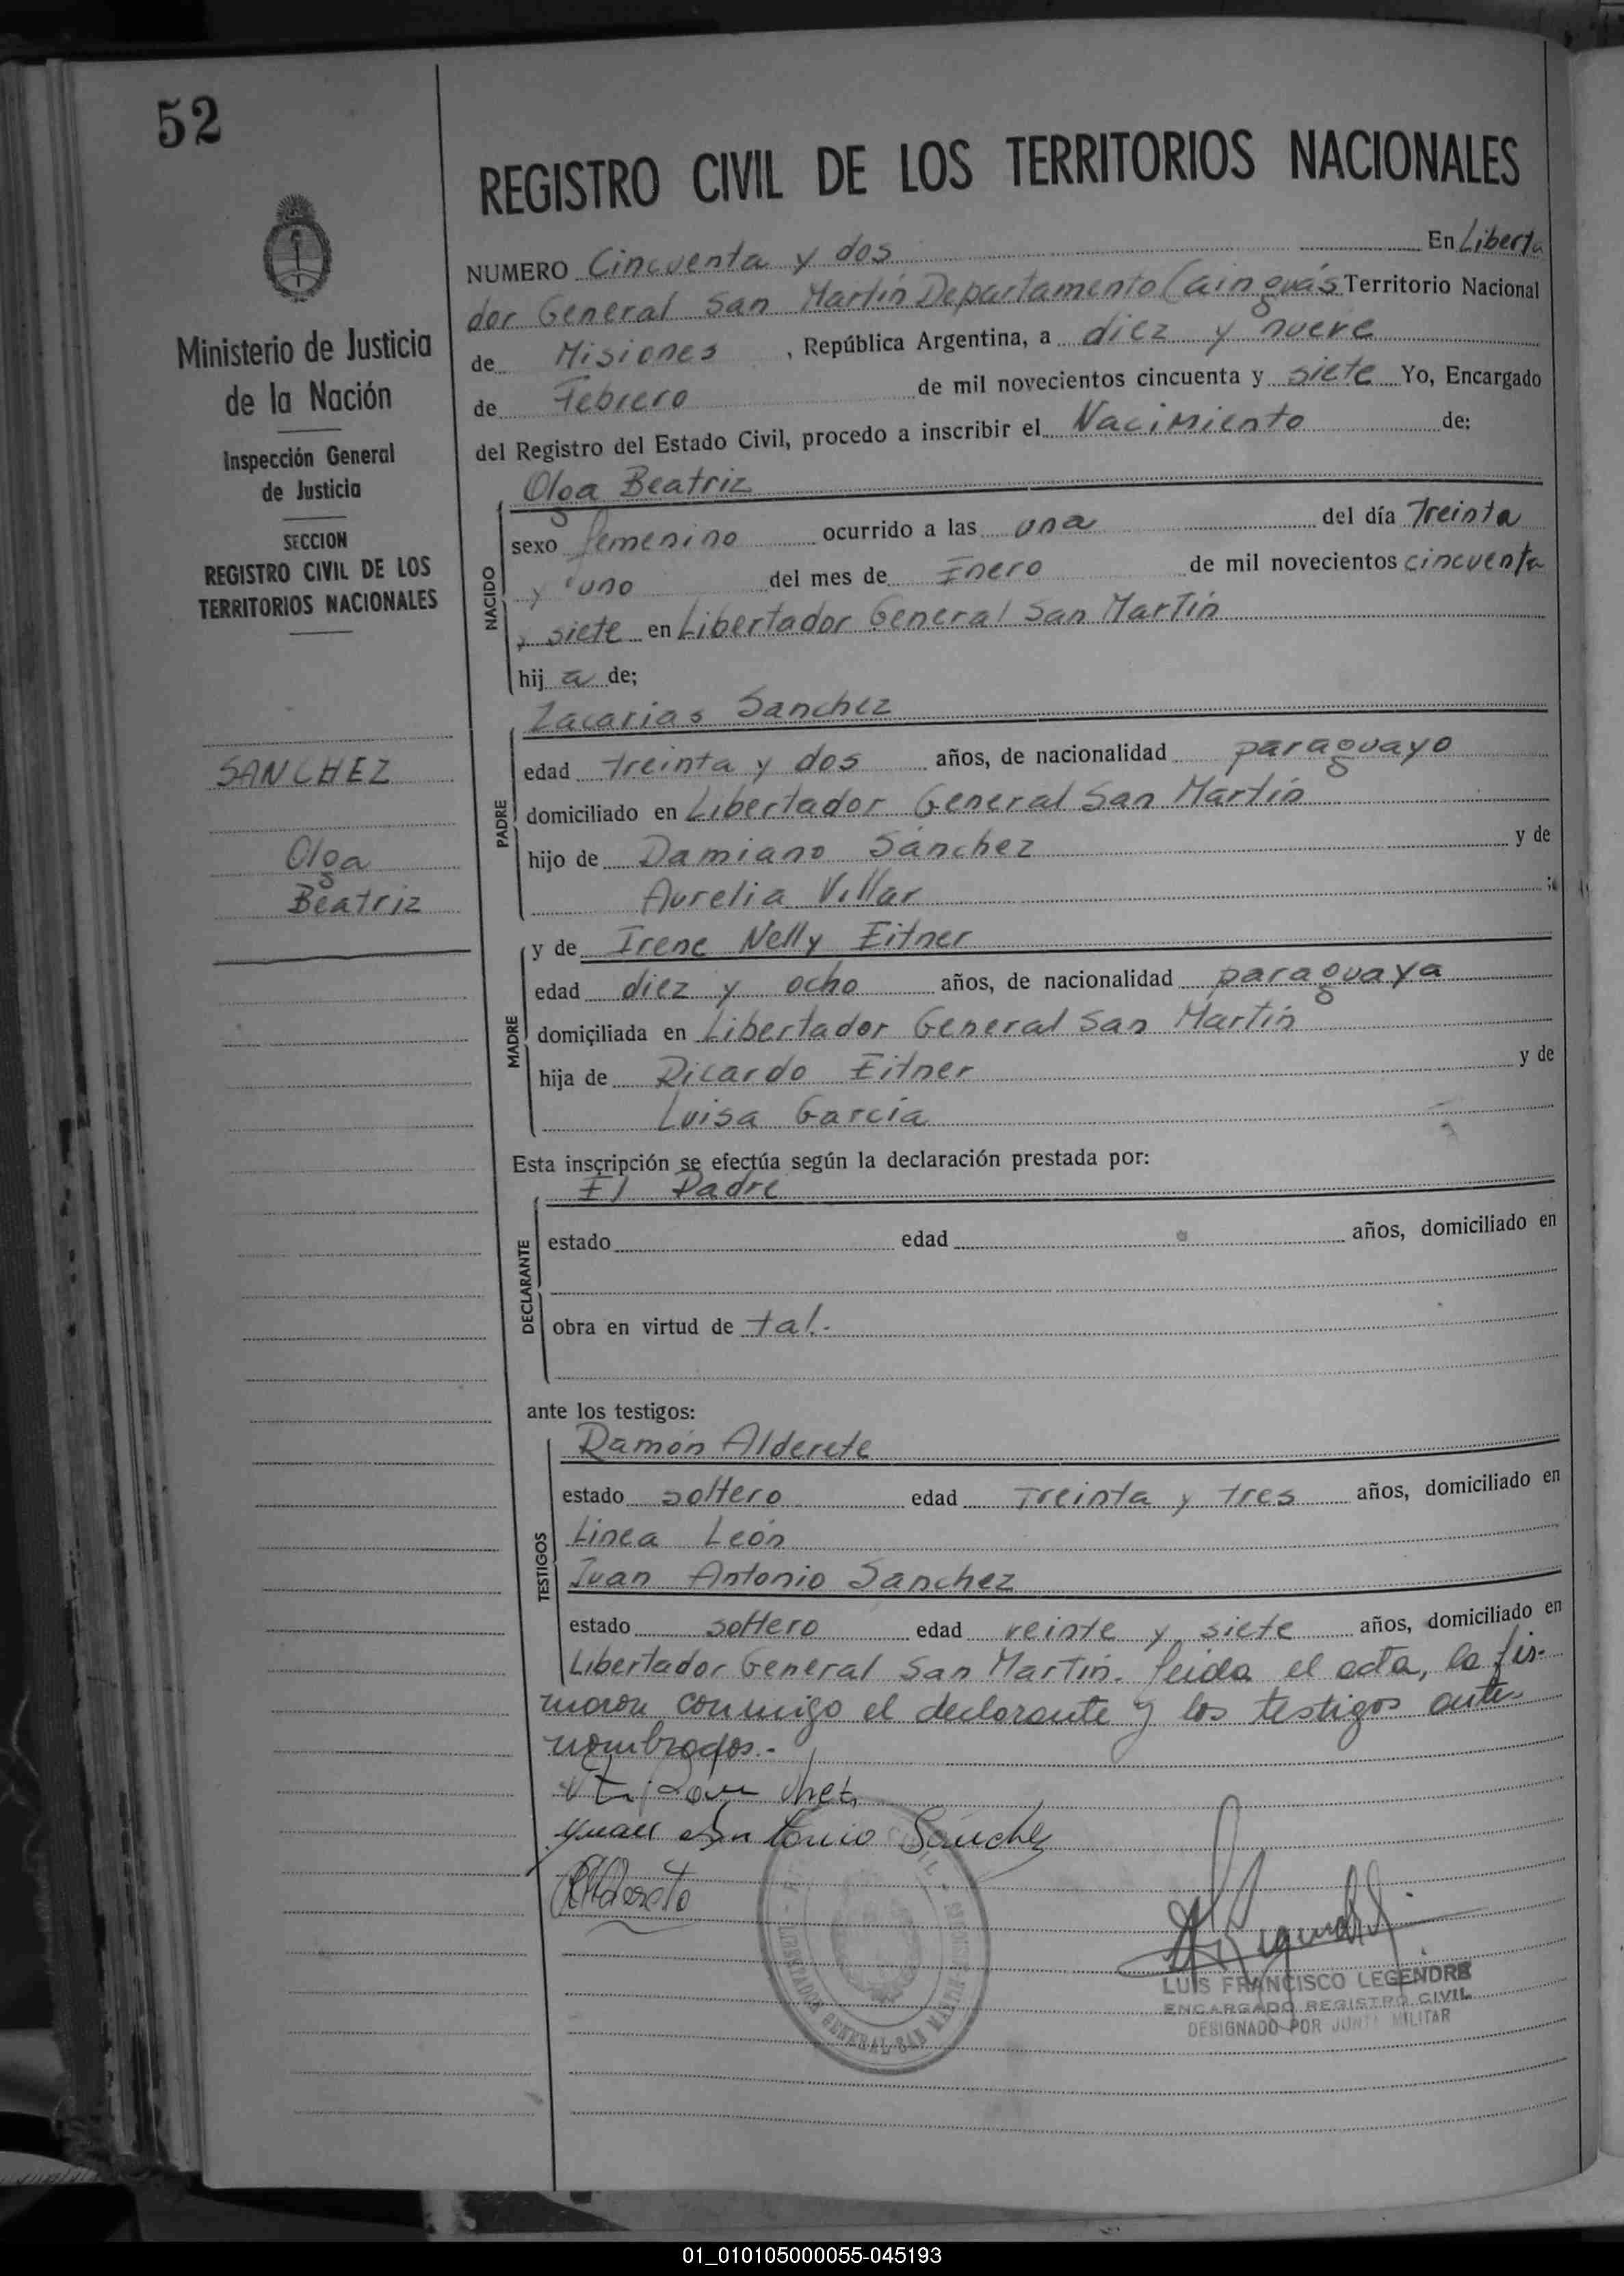 52
REGISTRO CIVIL DE LOS TERRITORIOS NACIONALES
Ministerio de Justicia
de la Nación
Inspección General
de Justicia
SECCION
REGISTRO CIVIL DE LOS
TERRITORIOS NACIONALES
SANCHEZ
Olga
Beatriz
NUMERO Cincuenta y dos En Liberta
dor General San Martín Departamento Cainguás Territorio Nacional
de Misiones , República Argentina, a diez y nueve
de Febrero de mil novecientos cincuenta y siete Yo, Encargado
del Registro del Estado Civil, procedo a inscribir el Nacimiento de:
Olga Beatriz
NACIDO
sexo femenino ocurrido a las una del día Treinta
y uno del mes de Enero de mil novecientos cincuenta
y siete en Libertador General San Martín
hij a de;
Zacarias Sanchez
PADRE
edad treinta y dos años, de nacionalidad paraguayo
domiciliado en Libertador General San Martín
hijo de Damiano Sánchez y de
Aurelia Villar ;
y de Irene Nelly Eitner
MADRE
edad diez y ocho años, de nacionalidad paraguaya
domiciliada en Libertador General San Martín
hija de Ricardo Eitner y de
Luisa García
Esta inscripción se efectúa según la declaración prestada por:
El Padre
DECLARANTE
estado edad años, domiciliado en
obra en virtud de tal.-
ante los testigos:
Ramón Alderete
TESTIGOS
estado soltero edad Treinta y tres años, domiciliado en
Linea León
Juan Antonio Sanchez
estado soltero edad veinte y siete años, domiciliado en
Libertador General San Martín. Leida el acta, la fir-
maron conmigo el declarante y los testigos ante-
nombrados.-
Juan Antonio Sánchez
LIBERTADOR GENERAL SAN MARTIN
LUIS FRANCISCO LEGENDRE
ENCARGADO REGISTRO CIVIL
DESIGNADO POR JUNTA MILITAR
01_010105000055-045193